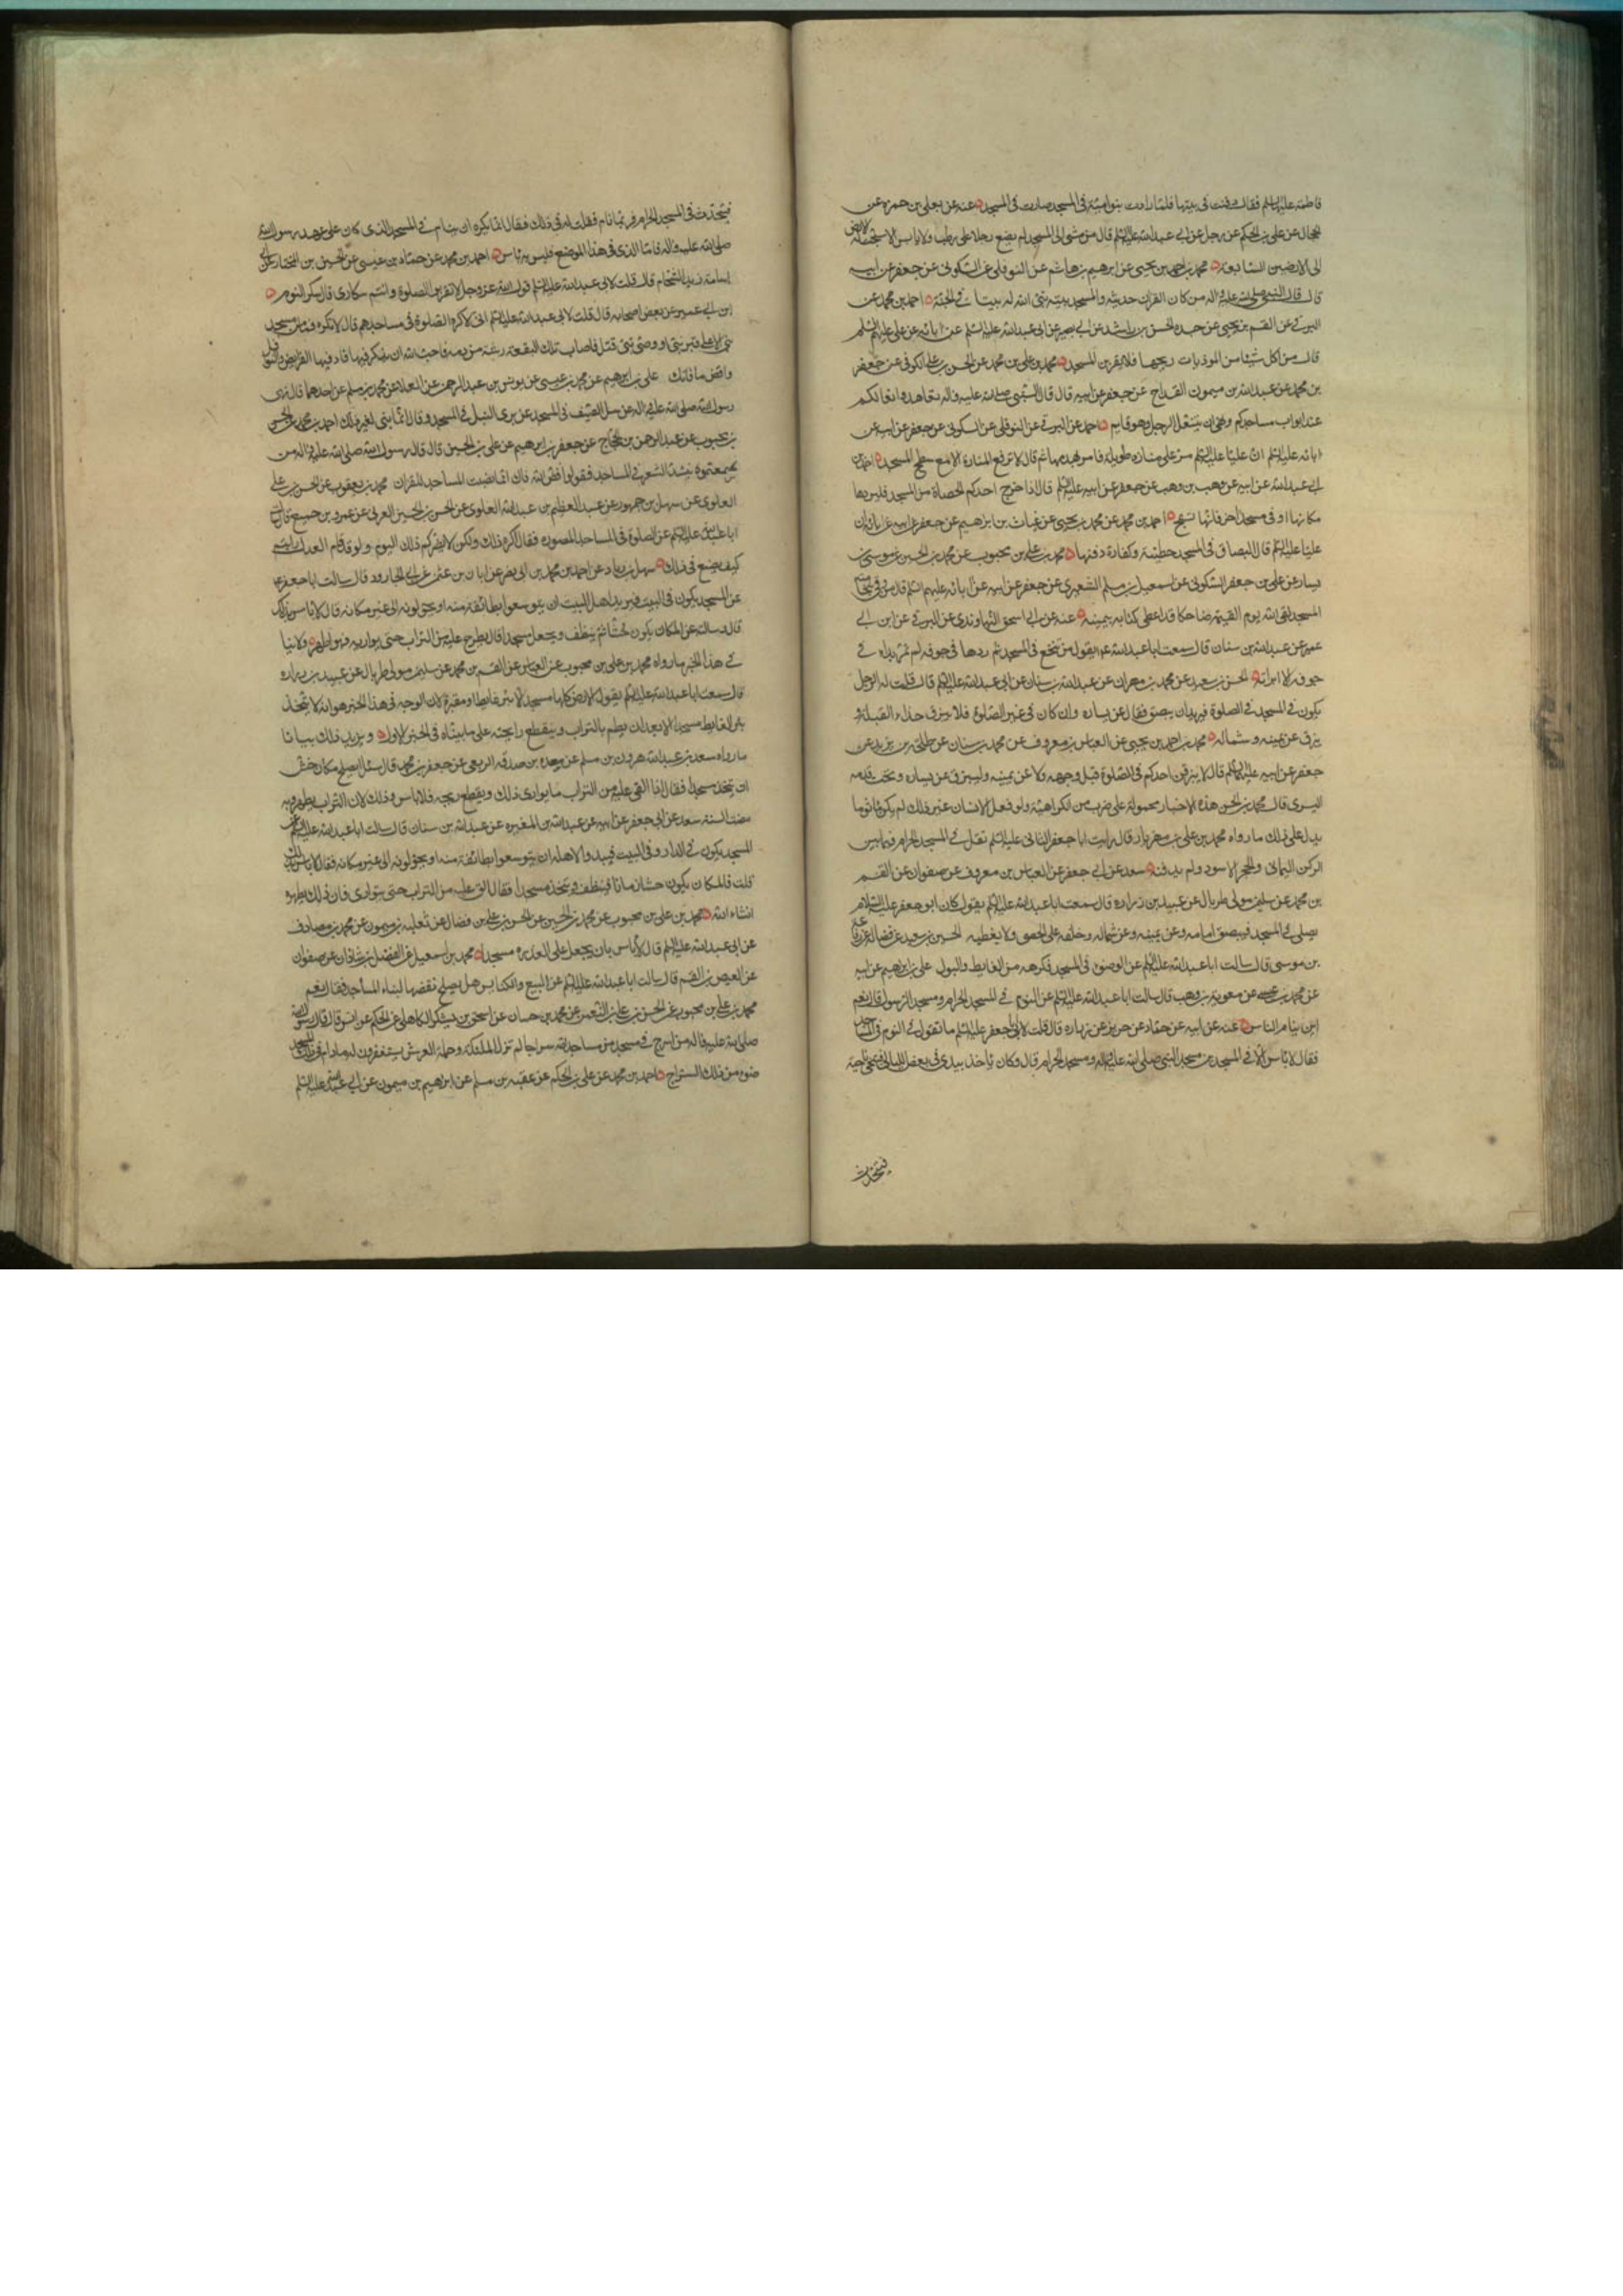 فاطمة عليها السلم فقال دفنت فى بيتها فلما زادت بنو امية فى المسجد صارت فى المسجد عنه عن يعلى بن حمزه عن
الحجال عن على بن الحكم عن رجل عن ابى عبد الله عليه السلم قال من مشى الى المسجد لم يضع رجلا على رطب ولا يابس الا سبحت له الارض
الى الارضين السابعة محمد بن احمد بن يحيى عن ابرهيم بن هاشم عن النوفلى عن السكونى عن جعفر عن ابيه
قال قال النبى صلى الله عليه واله من كان القران حديثه والمسجد بيته بنى الله له بيتا فى الجنة احمد بن محمد عن
البرقى عن القسم بن يحيى عن جده الحسن بن راشد عن ابى بصير عن ابى عبد الله عليه السلم عن ابائه عن على عليهم السلم
قال من اكل شيئا من الموذيات ريحها فلا يقربن المسجد محمد بن على بن محمد عن الحسن بن على الكوفى عن جعفر
بن محمد عن عبد الله بن ميمون القداح عن جعفر عن ابيه قال قال النبى صلى الله عليه واله تعاهدوا نعالكم
عند ابواب مساجدكم ونهى ان يتنعل الرجل وهو قايم احمد عن البرقى عن النوفلى عن السكونى عن جعفر عن ابيه عن
ابائه عليهم السلم ان عليا عليه السلم مر على منارة طويلة فامر بهدمها ثم قال لا ترفع المنارة الا مع سطح المسجد احمد بن
ابى عبد الله عن ابيه عن وهب بن وهب عن جعفر عن ابيه عليه السلم قال اذا اخرج احدكم الحصاة من المسجد فليردها
مكانها او فى مسجد اخر فانها تسبح احمد بن محمد عن محمد بن يحيى عن غياث بن ابرهيم عن جعفر عن ابيه عن ابائه ان
عليا عليه السلم قال البصاق فى المسجد خطيئة وكفارة دفنها محمد بن على بن محبوب عن محمد بن الحسين عن موسى بن
يسار عن على بن جعفر السكونى عن اسمعيل بن مسلم الشعيرى عن جعفر عن ابيه عن ابائه عليهم السلم قال من وقر بنخامته
المسجد لقى الله يوم القيمة ضاحكا قد اعطى كتابه بيمينه عنه عن ابى اسحق النهاوندى عن البرقى عن ابن ابى
عمير عن عبد الله بن سنان قال سمعت ابا عبد الله ع يقول من تنخع فى المسجد ثم ردها فى جوفه لم تمر بداء فى
جوفه الا ابراته الحسن بن سعيد عن محمد بن مهران عن عبد الله بن سنان عن ابى عبد الله عليه السلم قال قلت له الرجل
يكون فى المسجد فى الصلوة فيريد ان يبصق فقال عن يساره وان كان فى غير الصلوة فلا يبزق حذاء القبلة و
يبزق عن يمينه وشماله محمد بن احمد بن يحيى عن العباس بن معروف عن محمد بن سنان عن طلحة بن زيد عن
جعفر عن ابيه عليهما السلم قال لا يبزقن احدكم فى الصلوة قبل وجهه ولا عن يمينه وليبزق عن يساره وتحت قدمه
اليسرى قال محمد بن الحسن هذه الاخبار محمولة على ضرب من الكراهية ولو فعل الانسان غير ذلك لم يكن ماثوما
يدل على ذلك ما رواه محمد بن على بن مهزيار قال رايت ابا جعفر الثانى عليه السلم تفل فى المسجد الحرام فيما بين
الركن اليمانى والحجر الاسود ولم يدفنه سعد عن ابى جعفر عن العباس بن معروف عن صفوان عن القسم
بن محمد عن سليمن مولى طربال عن عبيد بن زراره قال سمعت ابا عبد الله عليه السلم يقول كان ابو جعفر عليه السلام
يصلى فى المسجد فيبصق امامه وعن يمينه وعن شماله وخلفه على الحصى ولا يغطيه الحسين بن سعيد عن فضالة عن رفاعة
بن موسى قال سالت ابا عبد الله عليه السلم عن الوضوء فى المسجد فكرهه من الغايط والبول على بن ابرهيم عن ابيه
عن محمد بن عيسى عن معوية بن وهب قال سالت ابا عبد الله عليه السلم عن النوم فى المسجد الحرام ومسجد الرسول قال نعم
اين ينام الناس عنه عن ابيه عن حماد عن حريز عن زرارة قال قلت لابى جعفر عليه السلم ما تقول فى النوم فى المساجد
فقال لا باس الا فى المسجدين مسجد النبى صلى الله عليه واله ومسجد الحرام قال وكان ياخذ بيدى فى بعض الليالى فيتنحى ناحية
فيتحدث
فيتحدث فى المسجد الحرام فربما نام فقلت له فى ذلك فقال انما يكره ان ينام فى المسجد الذى كان على عهد رسول الله
صلى الله عليه واله فاما الذى فى هذا الموضع فليس به باس احمد بن محمد عن حماد بن عيسى عن الحسين بن المختار عن ابى
اسامة زيد الشحام قال قلت لابى عبد الله عليه السلم قول الله عز وجل لا تقربوا الصلوة وانتم سكارى قال سكر النوم
ابن ابى عمير عن بعض اصحابه قال قلت لابى عبد الله عليه السلم انى لاكره الصلوة فى مساجدهم قال لا تكره فما من مسجد
بنى الا على قبر نبى او وصى نبى قتل فاصاب تلك البقعة رشة من دمه فاحب الله ان يذكر فيها فاد فيها الفرايض والنوافل
واقض ما فاتك على بن ابرهيم عن محمد بن عيسى عن يونس بن عبد الرحمن عن العلا عن محمد بن مسلم عن احدهما قال نهى
رسول الله صلى الله عليه واله عن سل السيف فى المسجد عن برى النبل فى المسجد وقال انما بنى لغير ذلك احمد بن محمد عن الحسن
بن محبوب عن عبد الرحمن بن الحجاج عن جعفر بن ابرهيم عن على بن الحسين قال قال رسول الله صلى الله عليه واله من
سمعتموه ينشد الشعر فى المساجد فقولوا فض الله فاك انما نصبت المساجد للقران محمد بن يعقوب عن الحسن بن على
العلوى عن سهل بن جمهور عن عبد العظيم بن عبد الله العلوى عن الحسن بن الحسين العرنى عن عمرو بن جميع قال سالت
ابا عبد الله عليه السلم عن الصلوة فى المساجد المصورة فقال اكره ذلك ولكن لا يضركم ذلك اليوم ولو قد قام العدل لرايتم
كيف يصنع فى ذلك سهل بن زياد عن احمد بن محمد بن ابى نصر عن ابان بن عثمن عن ابى الجارود قال سالت ابا جعفر ع
عن المسجد يكون فى البيت فيريد اهل البيت ان يتوسعوا بطائفة منه او يحولونه الى غير مكانه قال لا باس بذلك
قال وسالته عن المكان يكون خبيثا ثم ينظف ويجعل مسجدا قال يطرح عليه من التراب حتى يواريه فهو اطهر ولا ينافى
فى هذا الخبر ما رواه محمد بن على بن محبوب عن العباس عن القسم بن محمد عن سليمن مولى طربال عن عبيد بن زراره
قال سمعت ابا عبد الله عليه السلم يقول الارض كلها مسجد الا بئر غايط او مقبرة لان الوجه فى هذا الخبر هو انه لا يتخذ
بئر الغايط مسجدا الا بعد ان يطم بالتراب وينقطع رايحته على ما بيناه فى الخبر الاول ويزيد ذلك بيانا
ما رواه سعد بن عبد الله هرون بن مسلم عن مسعدة بن صدقه الربعى عن جعفر بن محمد قال سئل ايصلح مكان حش
ان يتخذ مسجدا فقال اذا القى عليه من التراب ما يوارى ذلك ويقطع ريحه فلا باس وذلك لان التراب يطهره وبه
مضت السنة سعد عن ابى جعفر عن ابيه عن عبد الله بن المغيره عن عبد الله بن سنان قال سالت ابا عبد الله عليه السلم عن
المسجد يكون فى الدار وفى البيت فيبدو لاهله ان يتوسعوا بطائفة منه او يحولونه الى غير مكانه فقال لا باس بذلك
قلت فالمكان يكون حشا زمانا فينظف ويتخذ مسجدا فقال الق عليه من التراب حتى يتوارى فان ذلك يطهره
انشاء الله محمد بن على بن محبوب عن محمد بن الحسين عن الحسن بن على بن فضال عن ثعلبة بن ميمون عن محمد بن مصادف
عن ابى عبد الله عليه السلم قال لا باس بان يجعل على العذره مسجدا محمد بن اسمعيل عن الفضل بن شاذان عن صفوان
عن العيص بن القسم قال سالت ابا عبد الله عليه السلم عن البيع والكنايس هل يصلح نقضها لبناء المساجد فقال نعم
محمد بن على بن محبوب عن الحسن بن على بن النعمن عن محمد بن حسان عن اسحق بن يشكر الكاهلى عن الحكم عن انس قال قال رسول الله
صلى الله عليه واله من اسرج فى مسجد من مساجد الله سراجا لم تزل الملئكة وحملة العرش يستغفرون له ما دام فى ذلك المسجد
ضوء من ذلك السراج احمد بن محمد عن على بن الحكم عن عقبة بن مسلم عن ابرهيم بن ميمون عن ابى عبد الله عليه السلم